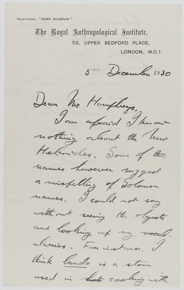 TELEPHONE, "4980 MUSEUM."
The Royal Anthropological Institute,
52, UPPER BEDFORD PLACE,
LONDON, W.C.1.
5 December 1930
Dear Mr Humphreys,
I am afraid I know
nothing about the New
Hebrides. Some of the
names however suggest
a misspelling of Solomon
names. I could not say
without seeing the objects
and looking up my vocab-
ularies. For instance, I
think lande is a stone
used in cooking with